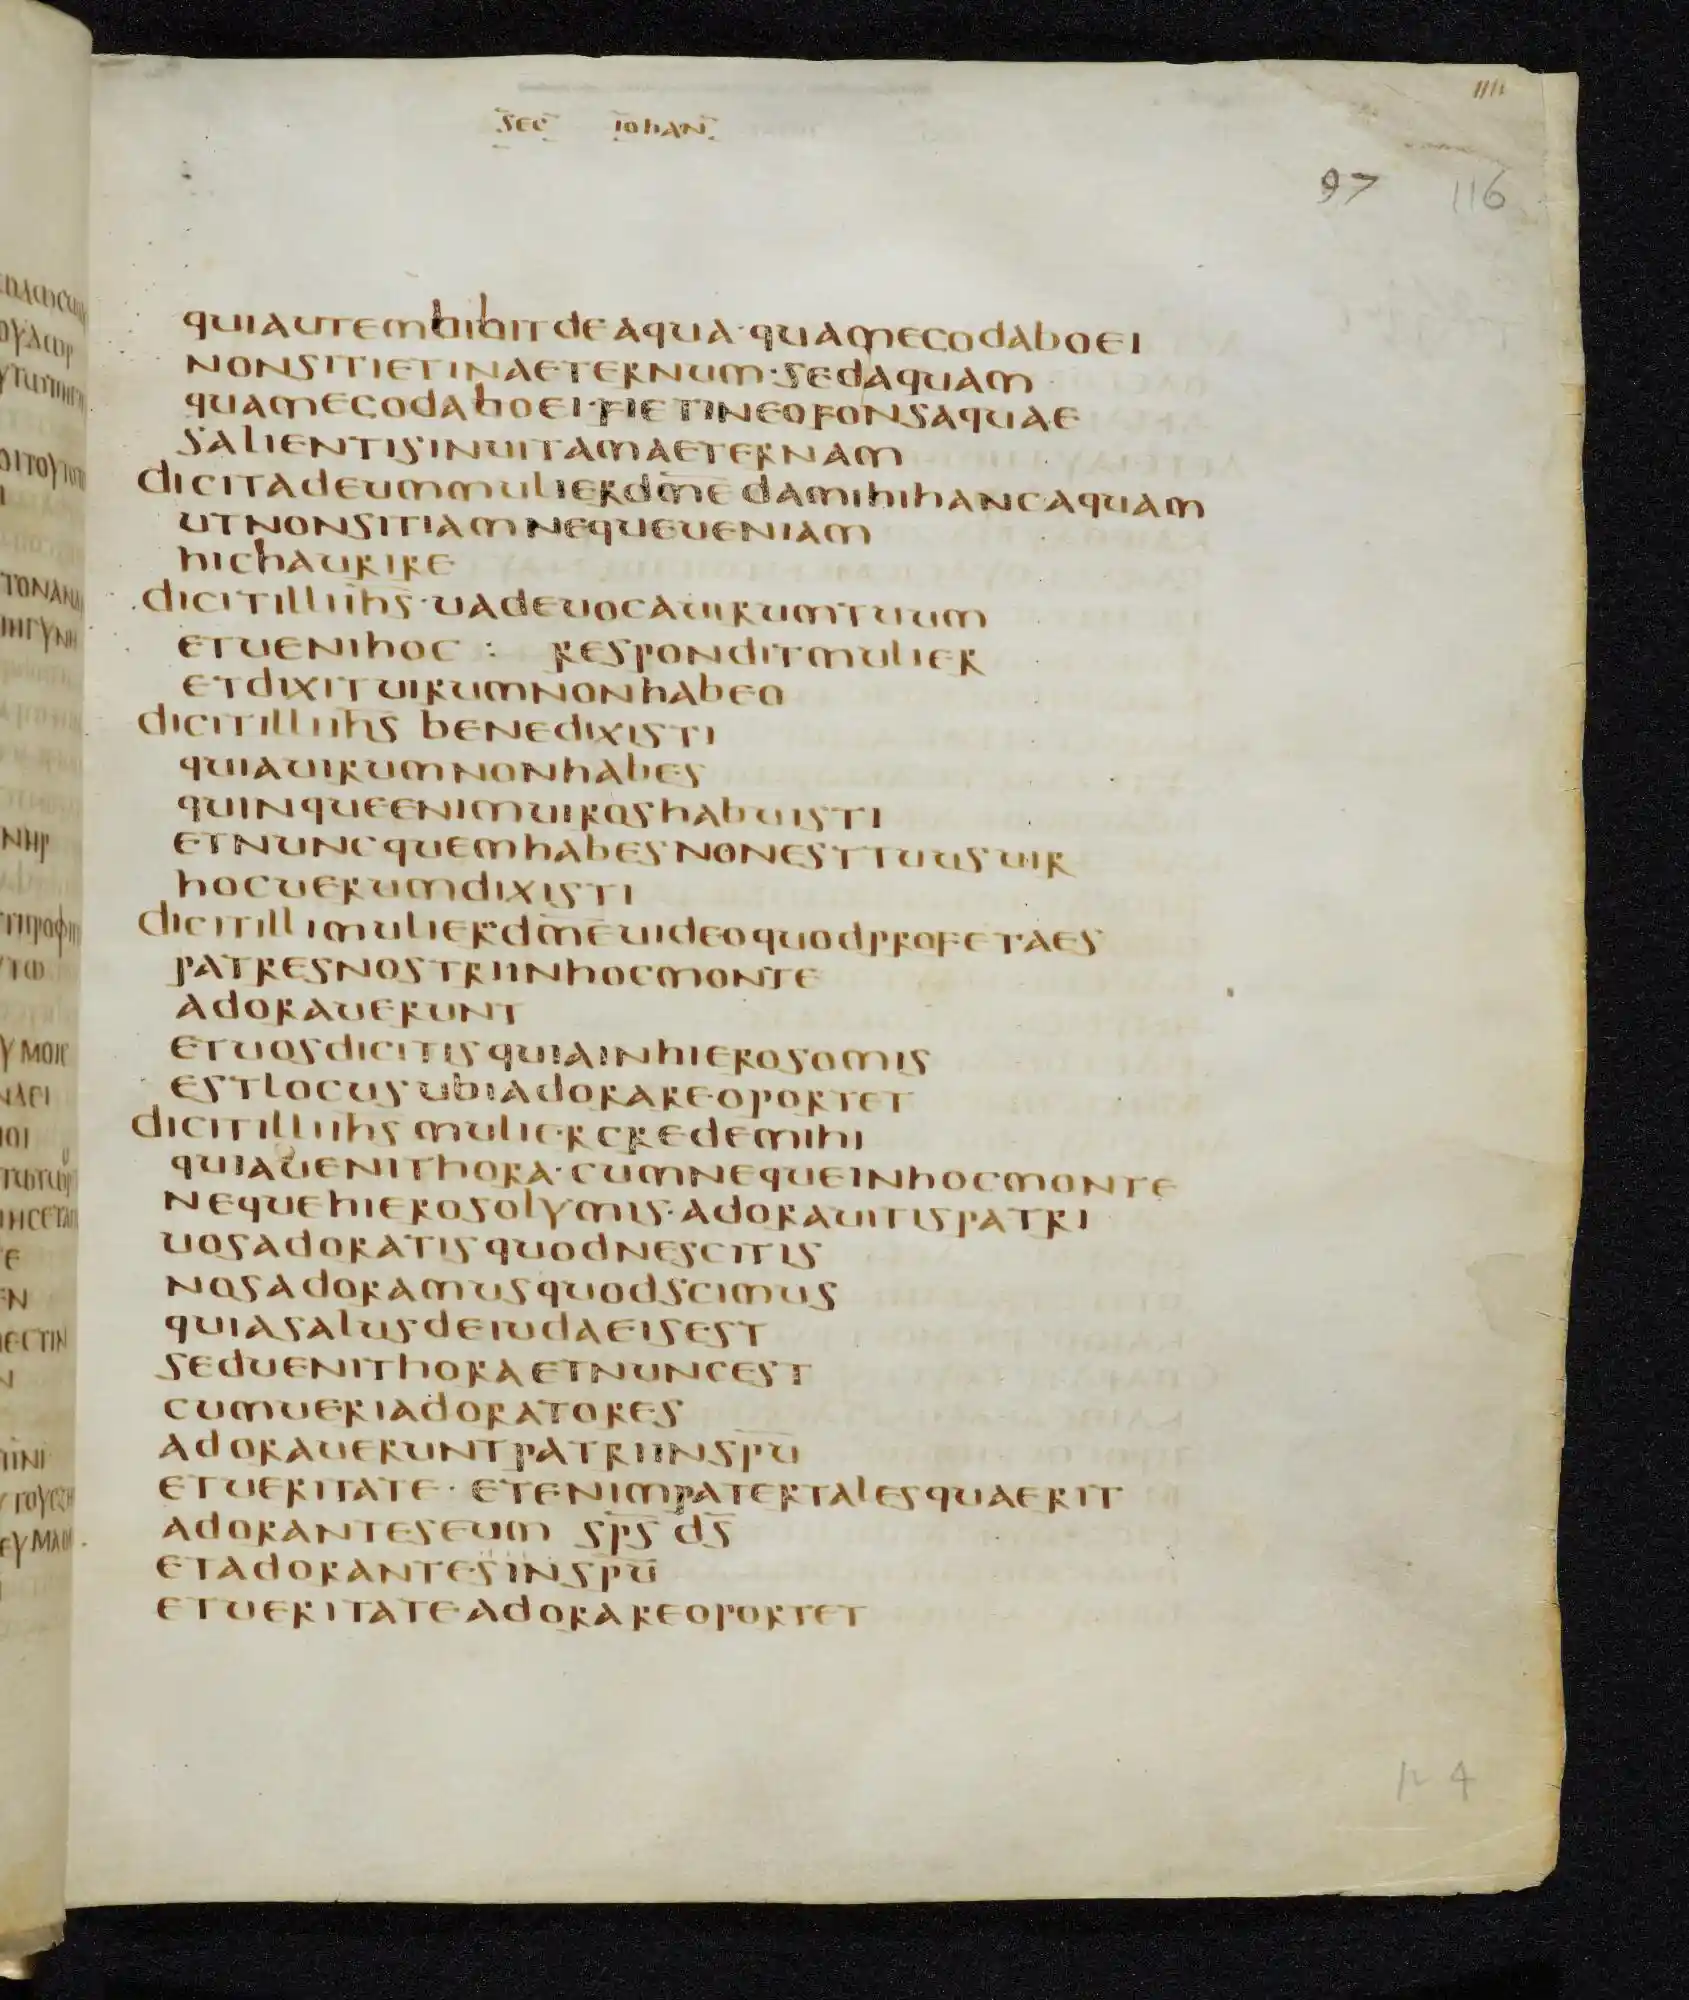 sec̅ iohan̅
97 116
quiautembibit deaqua · quamecodaboei
nonsitietinaeternum · sedaquam
quamecodaboei · fietineofonsaquae
salientisinuitamaeternam
dicitadeummulierdm̅e̅ damihihancaquam
utnonsitiamnequeueniam
hichaurire
dicitilliih̅s̅ · uadeuocauirumtuum
etuenihoc : responditmulier
etdixituirumnonhabeo
dicitilliih̅s̅ benedixisti
quiauirumnonhabes
quinqueenimuiroshabuisti
etnuncquemhabesnonesttuusuir
hocuerumdixisti
dicitillimulierdm̅e̅uideoquodprofetaes
patresnostriinhocmonte
adorauerunt
etuosdicitisquiainhierosomis
estlocusubiadorareoportet
dicitilliih̅s̅ muliercredemihi
quiauenithora · cumnequeinhocmonte
nequehierosolymis · adorauitispatri
uosadoratisquodnescitis
nosadoramusquodscimus
quiasalusdeiudaeisest
seduenithoraetnuncest
cumueriadoratores
adoraueruntpatriinsp̅u̅
etueritate · etenimpatertalesquaerit
adoranteseum sp̅s̅ ds̅
etadorantesinsp̅u̅
etueritateadorareoportet